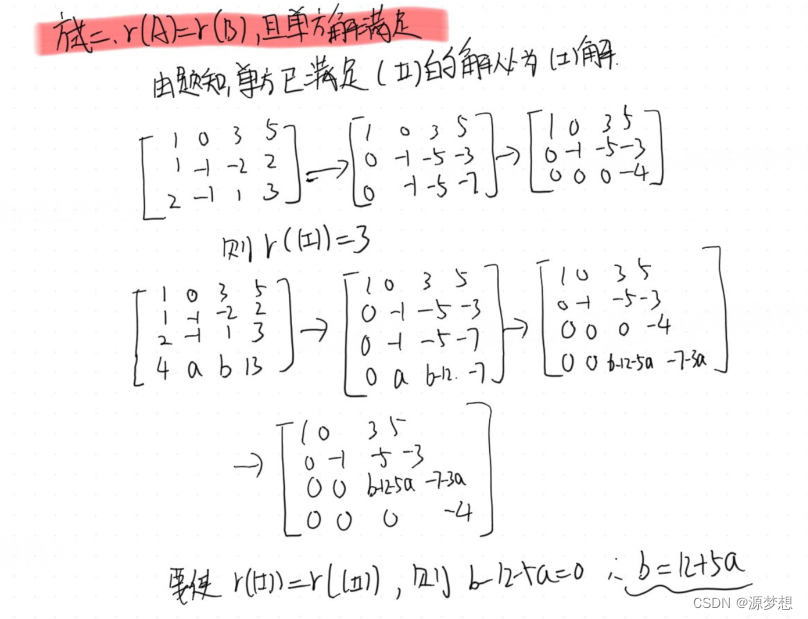 方法二、r(A)=r(B),且单方解满足
由题知,单方已满足(II)的解必为(I)解.
[1 0 3 5; 1 -1 -2 2; 2 -1 1 3] → [1 0 3 5; 0 -1 -5 -3; 0 -1 -5 -7] → [1 0 3 5; 0 -1 -5 -3; 0 0 0 -4]
则 r((I))=3
[1 0 3 5; 1 -1 -2 2; 2 -1 1 3; 4 a b 13] → [1 0 3 5; 0 -1 -5 -3; 0 -1 -5 -7; 0 a b-12. -7] → [1 0 3 5; 0 -1 -5 -3; 0 0 0 -4; 0 0 b-12-5a -7-3a]
→ [1 0 3 5; 0 -1 -5 -3; 0 0 b-12-5a -7-3a; 0 0 0 -4]
要使 r((I))=r((II)),则 b-12-5a=0 ∴ b=12+5a
CSDN @源梦想